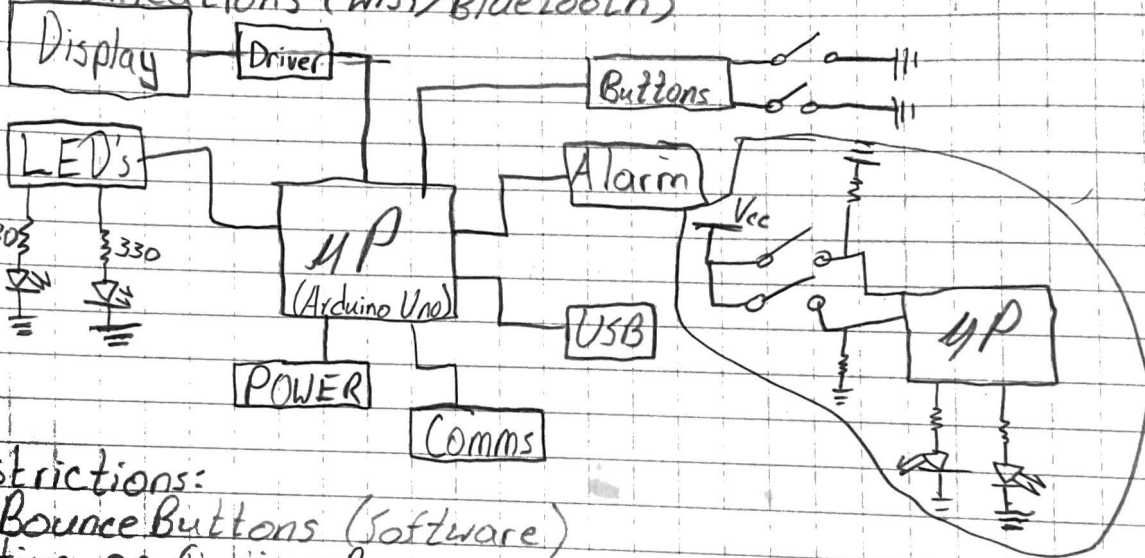 (Wifi/Bluetooth)
Display
Driver
Buttons
LED's
Alarm
Vcc
330
µP
(Arduino Uno)
µP
USB
POWER
Comms
Bounce Buttons (Software)